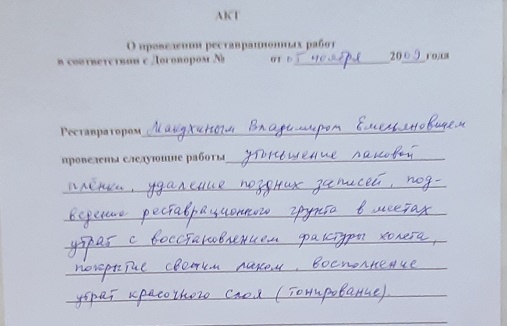 АКТ
О проведении реставрационных работ
в соответствии с Договором № от 05 ноября 2009 года
Реставратором Владимиром Емельяновичем
проведены следующие работы утоньшение лаковой
плёнки, удаление поздних записей, под-
ведение реставрационного грунта в местах
утрат с восстановлением фактуры холста,
покрытие свежим лаком, восполнение
утрат красочного слоя (тонирование).